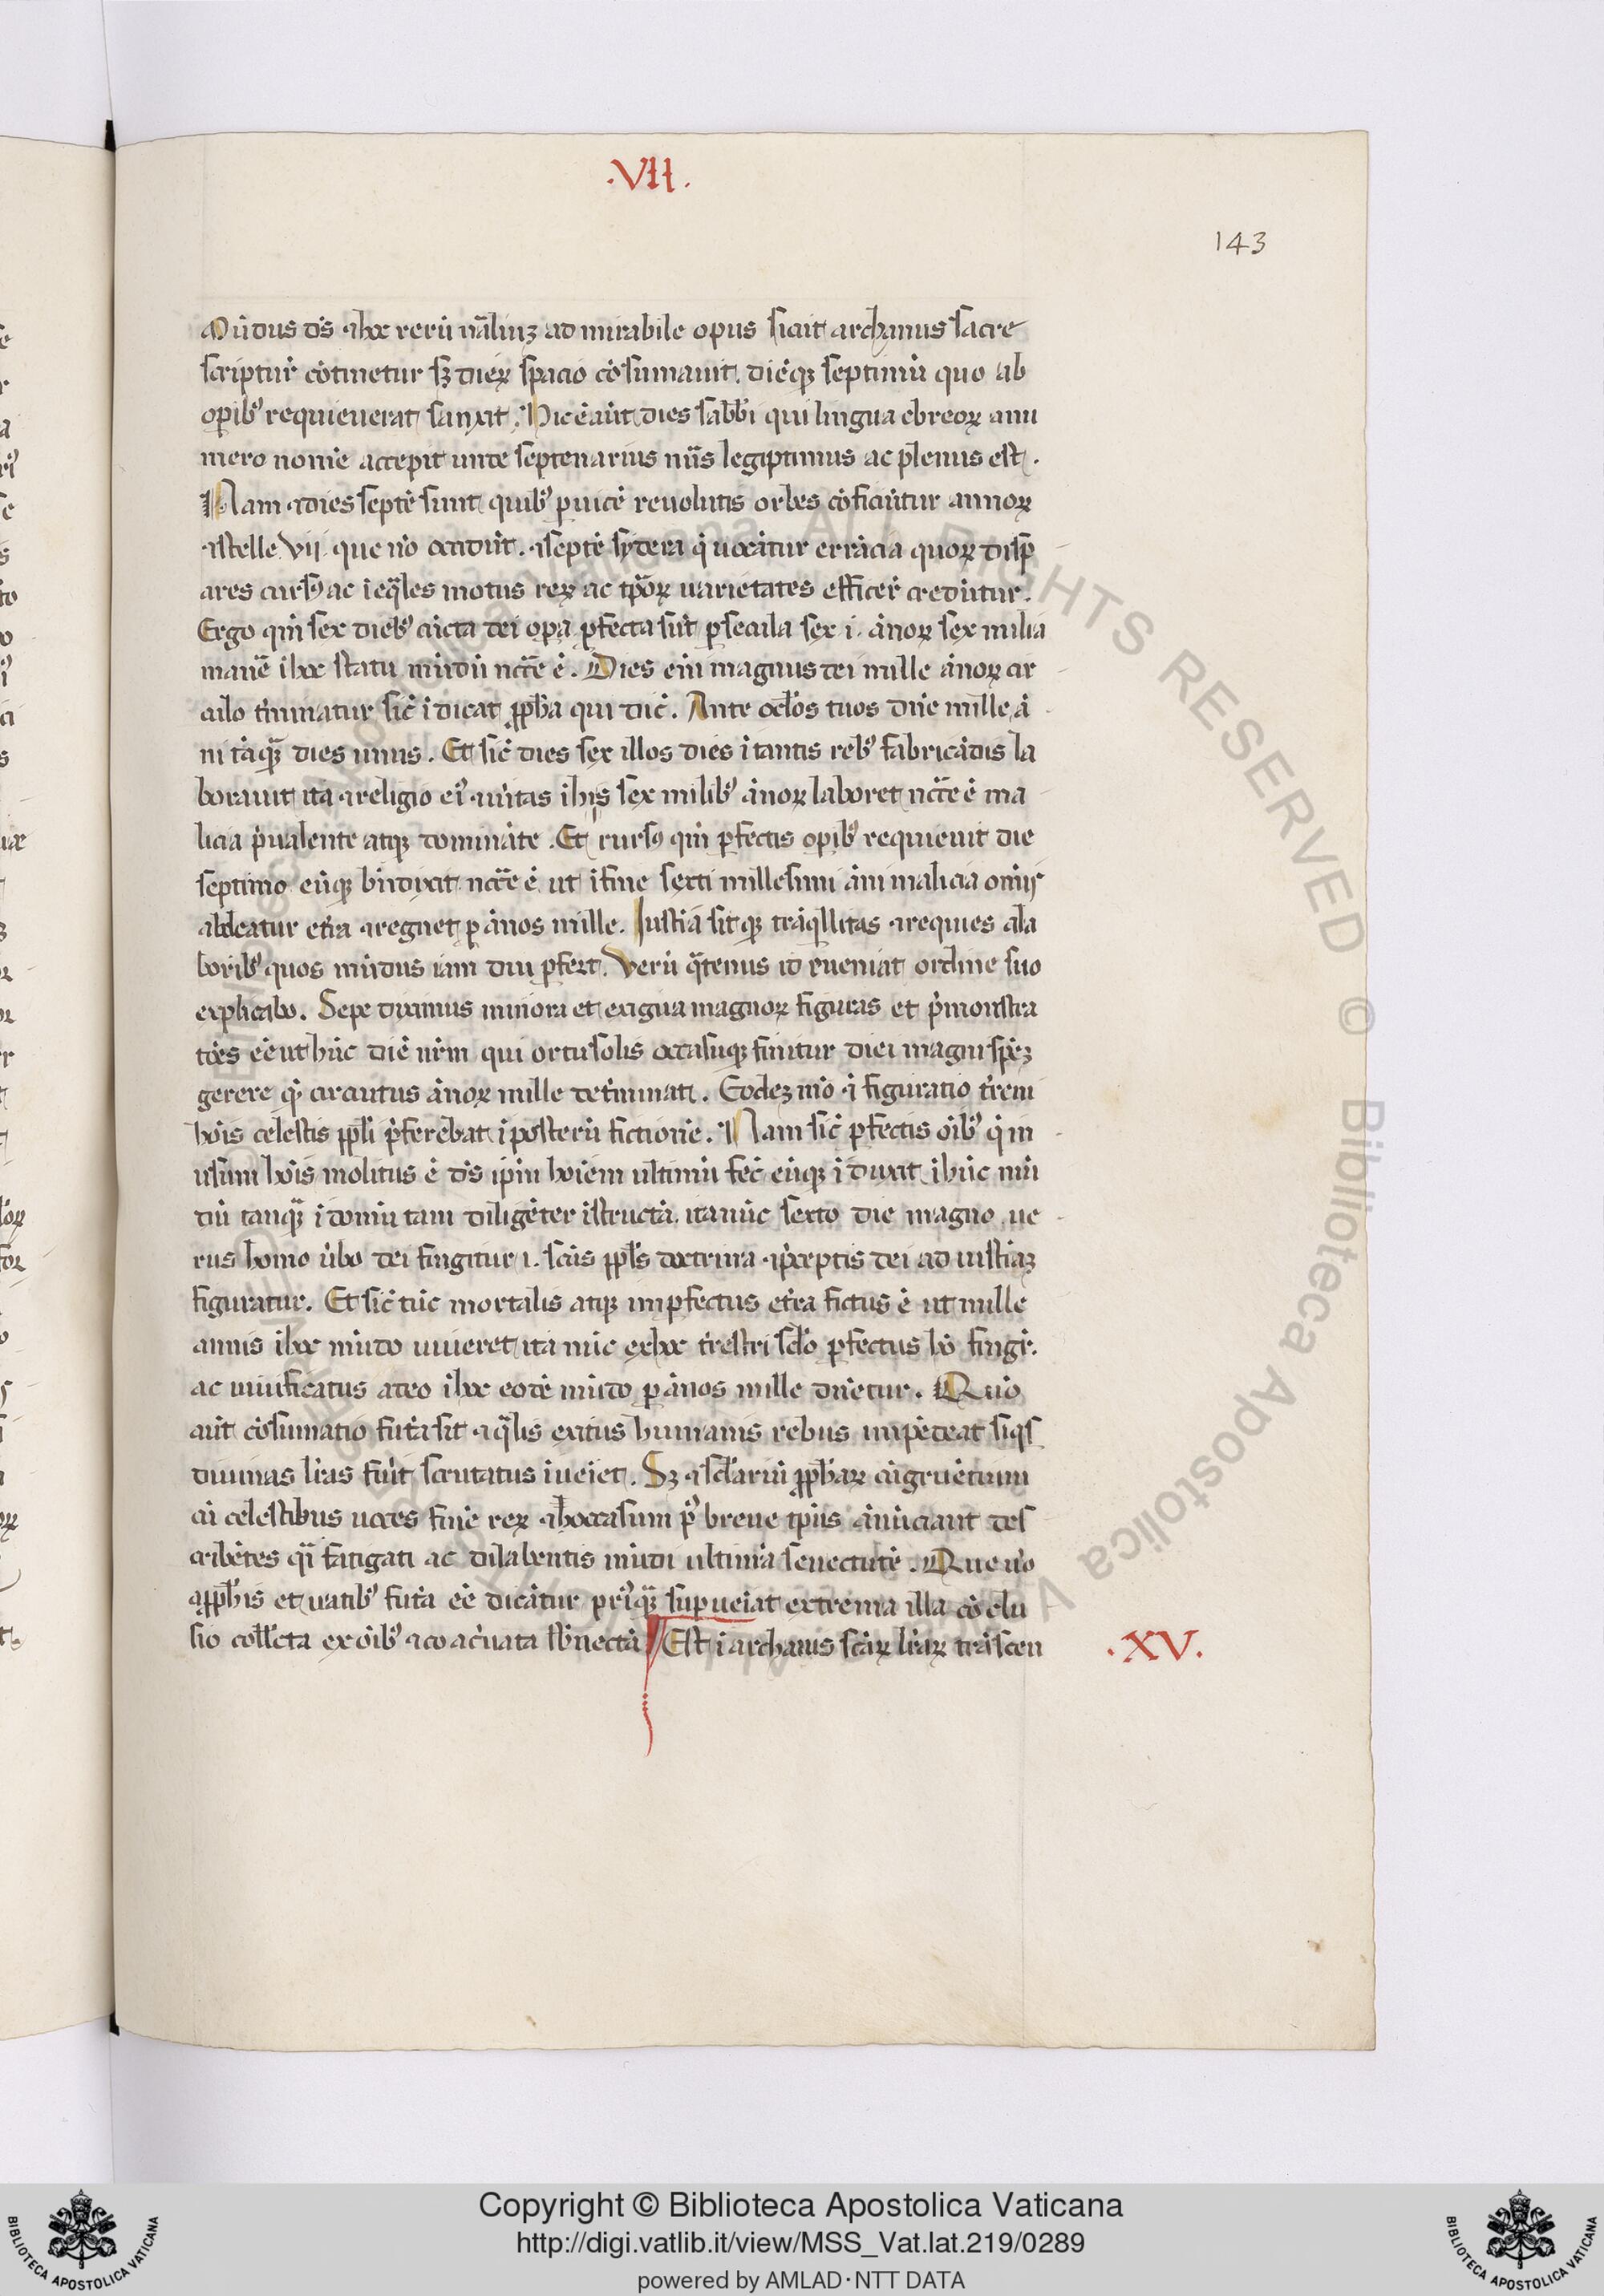 .VII.
143
Mūdus ds̄ ⁊ hoc rerū nāliuꝫ ad mirabile opus sicut archanus sacre
scriptur̄ cōtinetur sꝫ dieꝝ spacio cōsumauit. diēqꝫ septimū quo ab
opibꝰ requieuerat sanxit. Hic ē aūt dies sabbi qui lingua ebreoꝝ a nu
mero nomē accepit unde septenarius nūs legiptimus ac plenus est.
Nam ⁊ dies septē sunt quibꝰ p uicē reuolutis orbes cōficiūtur annoꝝ
⁊ stelle VII que nō occidūt. ⁊ septē sydera q̄ uocātur errācia quoꝝ disp
ares cursꝰ ac ieq̄les motus reꝝ ac tp̄oꝝ uarietates efficer̄ credūtur.
Ergo qm̄ sex diebꝰ cūcta dei opa pfecta sūt p secula sex .i. ānoꝝ sex milia
manē ī hoc statu mūdū ncc̄e ē. Dies eni magnus dei mille ānoꝝ cir
culo t̄minatur sic̄ īdicat ꝓpha qui dic̄. Ante oclos tuos dn̄e mille ā
ni tāqꝫ dies unus. Et sic̄ dies sex illos dies ī tantis rebꝰ fabricādis la
borauit ita ⁊ religio eiꝰ ⁊ ūitas ī his sex milibꝰ ānoꝝ laboret ncc̄e ē ma
licia p̄ualente atqꝫ domināte. Et rursꝰ qm̄ pfectis opibꝰ requieuit die
septimo eūqꝫ bn̄dixit ncc̄e ē ut ī fine sexti millesimi āni malicia omīs
aboleatur et̄ra ⁊ regnet p ānos mille. Iustia sitqꝫ trāqllitas ⁊ requies a la
boribꝰ quos mūdus iam diu pfert. Verū q̄tenus id eueniat ordine suo
explicabo. Sepe diximus minora et exigua magnoꝝ figuras et p̄monstra
tōes eē ut hūc diē nr̄m qui ortu solis occasuqꝫ finitur diei magni spēꝫ
gerere q̄ circuitus ānoꝝ mille det̄minat. Eodeꝫ mō ⁊ figuratio t̄reni
hōis celestis ppli p̄ferebat ī posterū fictionē. Nam sic̄ pfectis oībꝰ q̄ in
usum hōis molitus ē ds̄ ipm̄ hoīem ultimū fec̄ eūqꝫ īduxit ī hūc mū
dū tanqꝫ ī domū tam diligēter īstructā. ita nūc sexto die magno ue
rus homo ūbo dei fingitur .i. scūs ppls doctrina ⁊ p̄ceptis dei ad iustiāꝫ
figuratur. Et sic̄ tūc mortalis atqꝫ impfectus et̄ra fictus ē ut mille
annis ī hoc mūdo uiueret ita nūc ex hoc t̄restri sclo pfectus hō fingr̄.
ac uiuificatus a deo ī hoc eodē mūdo p ānos mille dn̄etur. Quō
aūt cōsumatio futa sit ⁊ q̄lis exitus humanis rebus impēdeat siqs
diuinas lr̄as fuūt scrutatus īueīet. Sꝫ ⁊ sclariū ꝓphaꝝ cūgruētium
cū celestibus uoces finē reꝝ ⁊ hoccasum pꝰ breue tpus ānūciant des
cribētes q̄i fatigati ac dilabentis mūdi ultimā senectutē. Que uō
a ꝓphis et uatibꝰ futa eē dicātur priꝰqꝫ supueiat extrema illa cō clu
sio collecta ex oībꝰ ⁊ coac̄uata sb̄nectā ¶ Est ī archanis scāꝝ lr̄aꝝ trāscen
.XV.
Copyright © Biblioteca Apostolica Vaticana
http://digi.vatlib.it/view/MSS_Vat.lat.219/0289
powered by AMLAD·NTT DATA